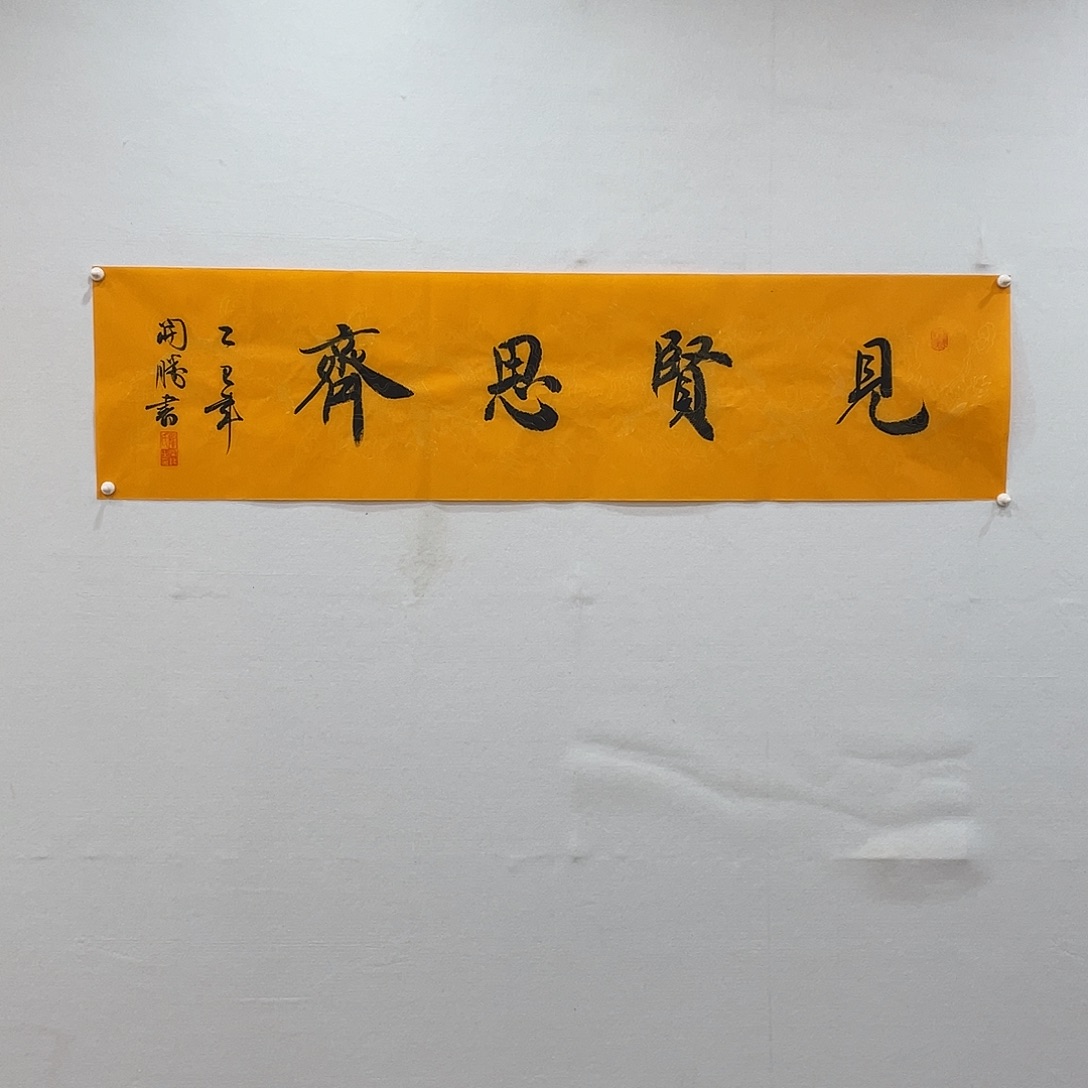 見賢思齊
乙巳年
開勝書